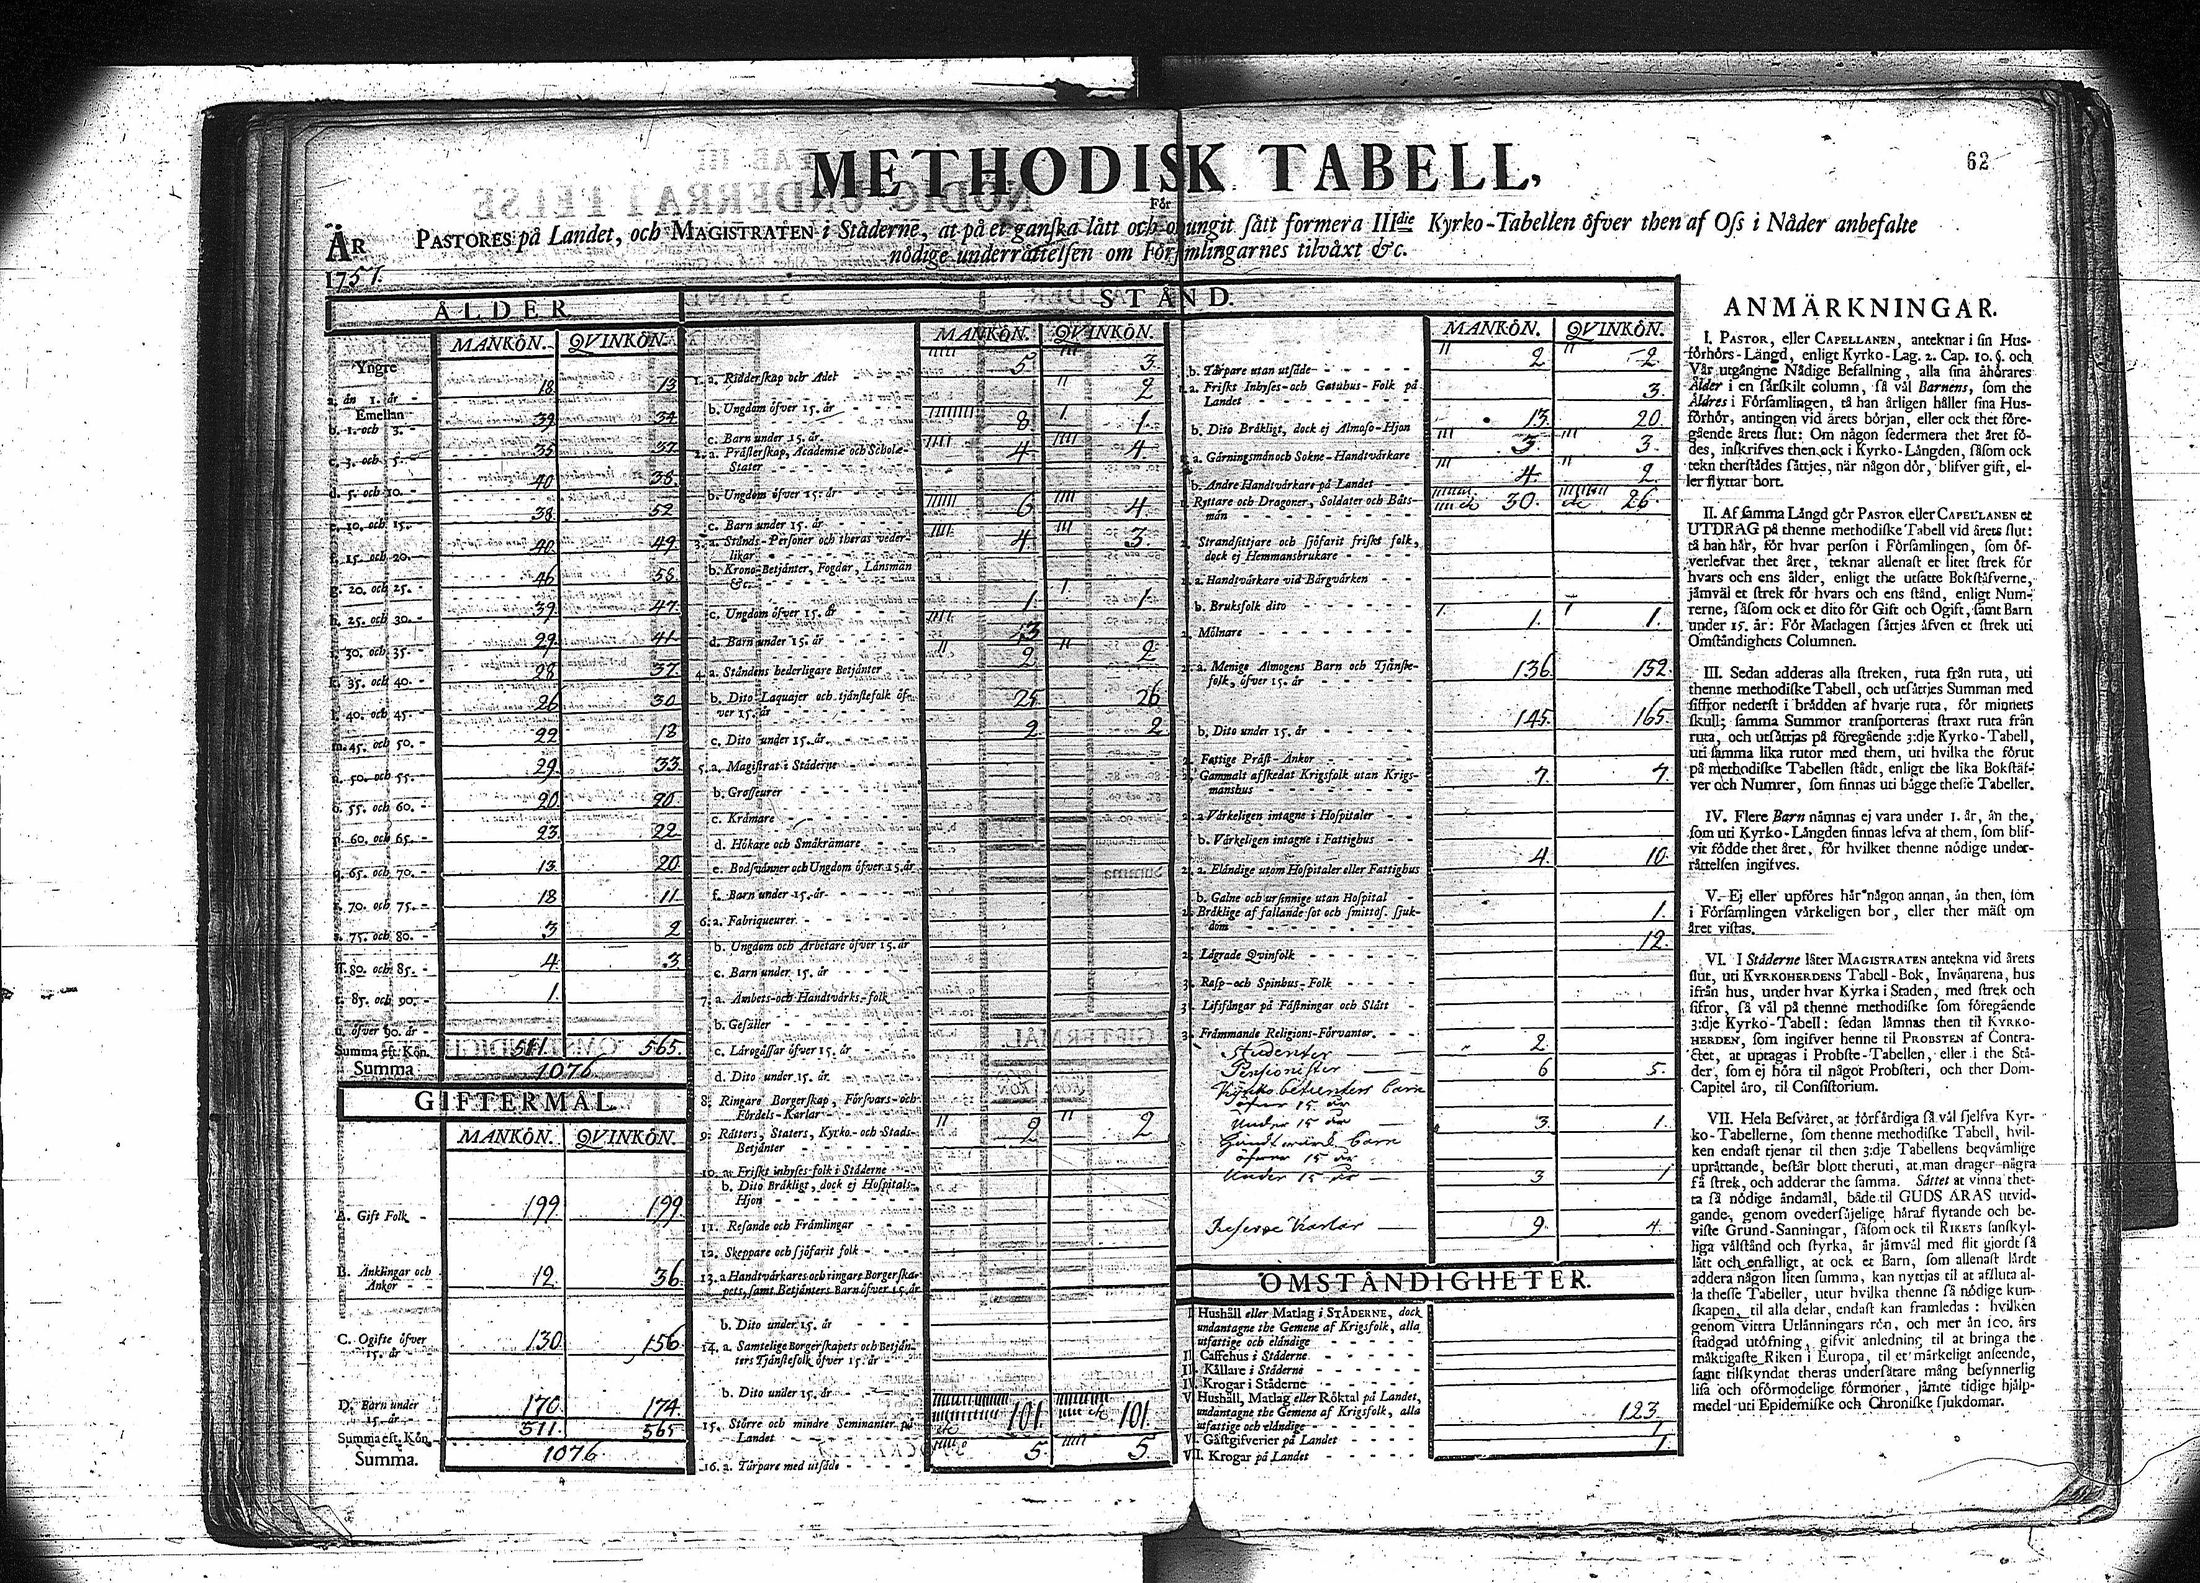 62
METHODISK TABELL,
För
PASTORES på Landet, och MAGISTRATEN i Städerne, at på et ganska lätt och otungit sätt formera IIIdie Kyrko-Tabellen öfver then af Oss i Nåder anbefalte
nödige underrättelsen om Församlingarnes tilväxt &c.
ÅR
1757.
ÅLDER
MANKÖN. QVINKÖN.
Yngre
a. än 1. år - 18 13
Emellan
b. 1. och 3. - 39 34
c. 3. och 5. - 35 37
d. 5. och 10. - 40 38
e. 10. och 15. - 38 52
f. 15. och 20. - 40 49
g. 20. och 25. - 46 58
h. 25. och 30. - 39 47
i. 30. och 35. - 29 41
k. 35. och 40. - 28 37
l. 40. och 45. - 26 30
m. 45. och 50. - 22 18
n. 50. och 55. - 29 33
o. 55. och 60. - 20 20
p. 60. och 65. - 23 22
q. 65. och 70. - 13 20
r. 70. och 75. - 18 11
s. 75. och 80. - 3 2
ſſ. 80. och 85. - 4 3
t. 85. och 90. - 1
u. öfver 90. år -
Summa eft. Kön. 511 565
Summa 1076
GIFTERMÅL
MANKÖN. QVINKÖN.
A. Gift Folk - 199 199
B. Änklingar och
Änkor - - 12 36
C. Ogifte öfver
15. år - - 130 156
D. Barn under
15. år - - 170 174
Summa eft. Kön. 511 565
Summa. 1076
STÅND.
MANKÖN. QVINKÖN.
1. a. Ridderskap och Adel 5 3
b. Ungdom öfver 15. år 2
c. Barn under 15. år 8 1
2. a. Prästerskap, Academiæ och Scholæ-
Stater 4 4
b. Ungdom öfver 15. år
c. Barn under 15. år 6 4
3. a. Stånds-Personer och theras veder-
likar 4 3
b. Krono-Betjänter, Fogdar, Länsmän
&c.
c. Ungdom öfver 15. år 1 1
d. Barn under 15. år
4. a. Ståndens hederligare Betjänter 2 2
b. Dito Laquajer och tjänstefolk öf-
ver 15. år 25 26
c. Dito under 15. år 2 2
5. a. Magistrat i Städerne
b. Grosseurer
c. Krämare
d. Hökare och Småkrämare
e. Bodsvänner och Ungdom öfver 15. år
f. Barn under 15. år
6. a. Fabriqueurer
b. Ungdom och Arbetare öfver 15. år
c. Barn under 15. år
7. a. Ämbets- och Handtvärks-folk
b. Gesäller
c. Lärogåssar öfver 15. år
d. Dito under 15. år
8. Ringare Borgerskap, Försvars- och
Fördels-Karlar
9. Rätters, Staters, Kyrko- och Stads-
Betjänter 2 2
10. a. Friskt inhyses-folk i Städerne
b. Dito Bräkligt, dock ej Hospitals-
Hjon
11. Resande och Främlingar
12. Skeppare och sjöfarit folk
13. a. Handtvärkares och ringare Borgerska-
pets, samt Betjänters Barn öfver 15. år
b. Dito under 15. år
14. a. Samtelige Borgerskapets och Betjän-
ters Tjänstefolk öfver 15. år
b. Dito under 15. år
15. Större och mindre Seminanter på
Landet 101 101
16. a. Tårpare med utsäde 5 5
MANKÖN. QVINKÖN.
b. Tårpare utan utsäde 2 2
a. Friskt Inhyses- och Gatuhus-Folk på
Landet 3
b. Dito Bräkligt, dock ej Almoso-Hjon 13 20
a. Gärningsmän och Sokne-Handtvärkare 3 3
b. Andre Handtvärkare på Landet 4 2
Ryttare och Dragoner, Soldater och Båts-
män 30 26
Strandsittjare och sjöfarit friskt folk,
dock ej Hemmansbrukare
a. Handtvärkare vid Bärgvärken
b. Bruksfolk dito
Mölnare 1 1
a. Menige Almogens Barn och Tjänste-
folk, öfver 15. år 136 152
b. Dito under 15. år 145 165
Fattige Präst-Änkor
Gammalt afskedat Krigsfolk utan Krigs-
manshus 7 7
a. Värkeligen intagne i Hospitaler
b. Värkeligen intagne i Fattighus
a. Eländige utom Hospitaler eller Fattighus 4 10
b. Galne och ursinnige utan Hospital
Bräklige af fallande sot och smittos. sjuk-
dom 1
Lägrade Qvinfolk 12
Rasp- och Spinhus-Folk
Lifsfångar på Fästningar och Slått
Främmande Religions-Förvanter.
Studenter 2
Pensionister 6 5
Kyrko betienters barn
öfver 15 år
Under 15 år 3 1
öfver 15 år
Under 15 år 3 1
Reserve Karlar 9 4
OMSTÄNDIGHETER.
I. Hushåll eller Matlag i STÄDERNE, dock
undantagne the Gemene af Krigsfolk, alla
utfattige och eländige
II. Caffehus i Städerne
III. Källare i Städerne
IV. Krogar i Städerne
V. Hushåll, Matlag eller Röktal på Landet,
undantagne the Gemene af Krigsfolk, alla
utfattige och eländige 123
VI. Gästgifverier på Landet 1
VII. Krogar på Landet 1
ANMÄRKNINGAR.
I. PASTOR, eller CAPELLANEN, anteknar i sin Hus-
förhörs-Längd, enligt Kyrko-Lag. 2. Cap. 10. §. och
Vår utgångne Nådige Befallning, alla sina åhörares
Ålder i en särskilt column, så väl Barnens, som the
Äldres i Församlingen, tå han årligen håller sina Hus-
förhör, antingen vid årets början, eller ock thet före-
gående årets slut: Om någon sedermera thet året fö-
des, inskrifves then ock i Kyrko-Längden, såsom ock
tekn therstädes sättjes, när någon dör, blifver gift, el-
ler flyttar bort.
II. Af samma Längd gör PASTOR eller CAPELLANEN et
UTDRAG på thenne methodiske Tabell vid årets slut:
tå han här, för hvar person i Församlingen, som öf-
verlefvat thet året, teknar allenast et litet strek för
hvars och ens ålder, enligt the utsatte Bokstäfverne,
jämväl et strek för hvars och ens stånd, enligt Num-
rerne, såsom ock et dito för Gift och Ogift, samt Barn
under 15. år: För Matlagen sättjes äfven et strek uti
Omständighets Columnen.
III. Sedan adderas alla streken, ruta från ruta, uti
thenne methodiske Tabell, och utsättjes Summan med
siffror nederst i brädden af hvarje ruta, för minnets
skull; samma Summor transporteras straxt ruta från
ruta, och utsättjas på föregående 3:dje Kyrko-Tabell,
uti samma lika rutor med them, uti hvilka the förut
på methodiske Tabellen städt, enligt the lika Bokstäf-
ver och Numrer, som finnas uti bägge thesse Tabeller.
IV. Flere Barn nämnas ej vara under 1. år, än the,
som uti Kyrko-Längden finnas lefva af them, som blif-
vit födde thet året, för hvilket thenne nödige under-
rättelsen ingifves.
V. Ej eller upföres här någon annan, än then, som
i Församlingen värkeligen bor, eller ther mäst om
året vistas.
VI. I Städerne låter MAGISTRATEN antekna vid årets
slut, uti KYRKOHERDENS Tabell-Bok, Invånarena, hus
ifrån hus, under hvar Kyrka i Staden, med strek och
sifror, så väl på thenne methodiske som föregående
3:dje Kyrko-Tabell: sedan lämnas then til KYRKO-
HERDEN, som ingifver henne til PROBSTEN af Contra-
ctet, at uptagas i Probste-Tabellen, eller i the Stä-
der, som ej höra til något Probsteri, och ther Dom-
Capitel äro, til Consistorium.
VII. Hela Besväret, at förfärdiga så väl sjelfva Kyr-
ko-Tabellerne, som thenne methodiske Tabell, hvil-
ken endast tjenar til then 3:dje Tabellens beqvämlige
uprättande, består blott theruti, at man drager några
få strek, och adderar the samma. Sättet at vinna thet-
ta så nödige ändamål, både til GUDS ÄRAS utvid-
gande, genom ovedersäjelige häraf flytande och be-
viste Grund-Sanningar, såsom ock til RIKETS sanskyl-
liga välstånd och styrka, är jämväl med flit gjordt så
lätt och enfalligt, at ock et Barn, som allenast lärdt
addera någon liten summa, kan nyttjas til at afsluta al-
la thesse Tabeller, utur hvilka thenne så nödige kun-
skapen, til alla delar, endast kan framledas: hvilken
genom vittra Utlänningars rön, och mer än 100. års
stadgad utöfning, gifvit anledning til at bringa the
mäktigaste Riken i Europa, til et märkeligt anseende,
samt tilskyndat theras undersåtare mång besynnerlig
lisa och oförmodelige förmoner, jämte tidige hjälp-
medel uti Epidemiske och Chroniske sjukdomar.